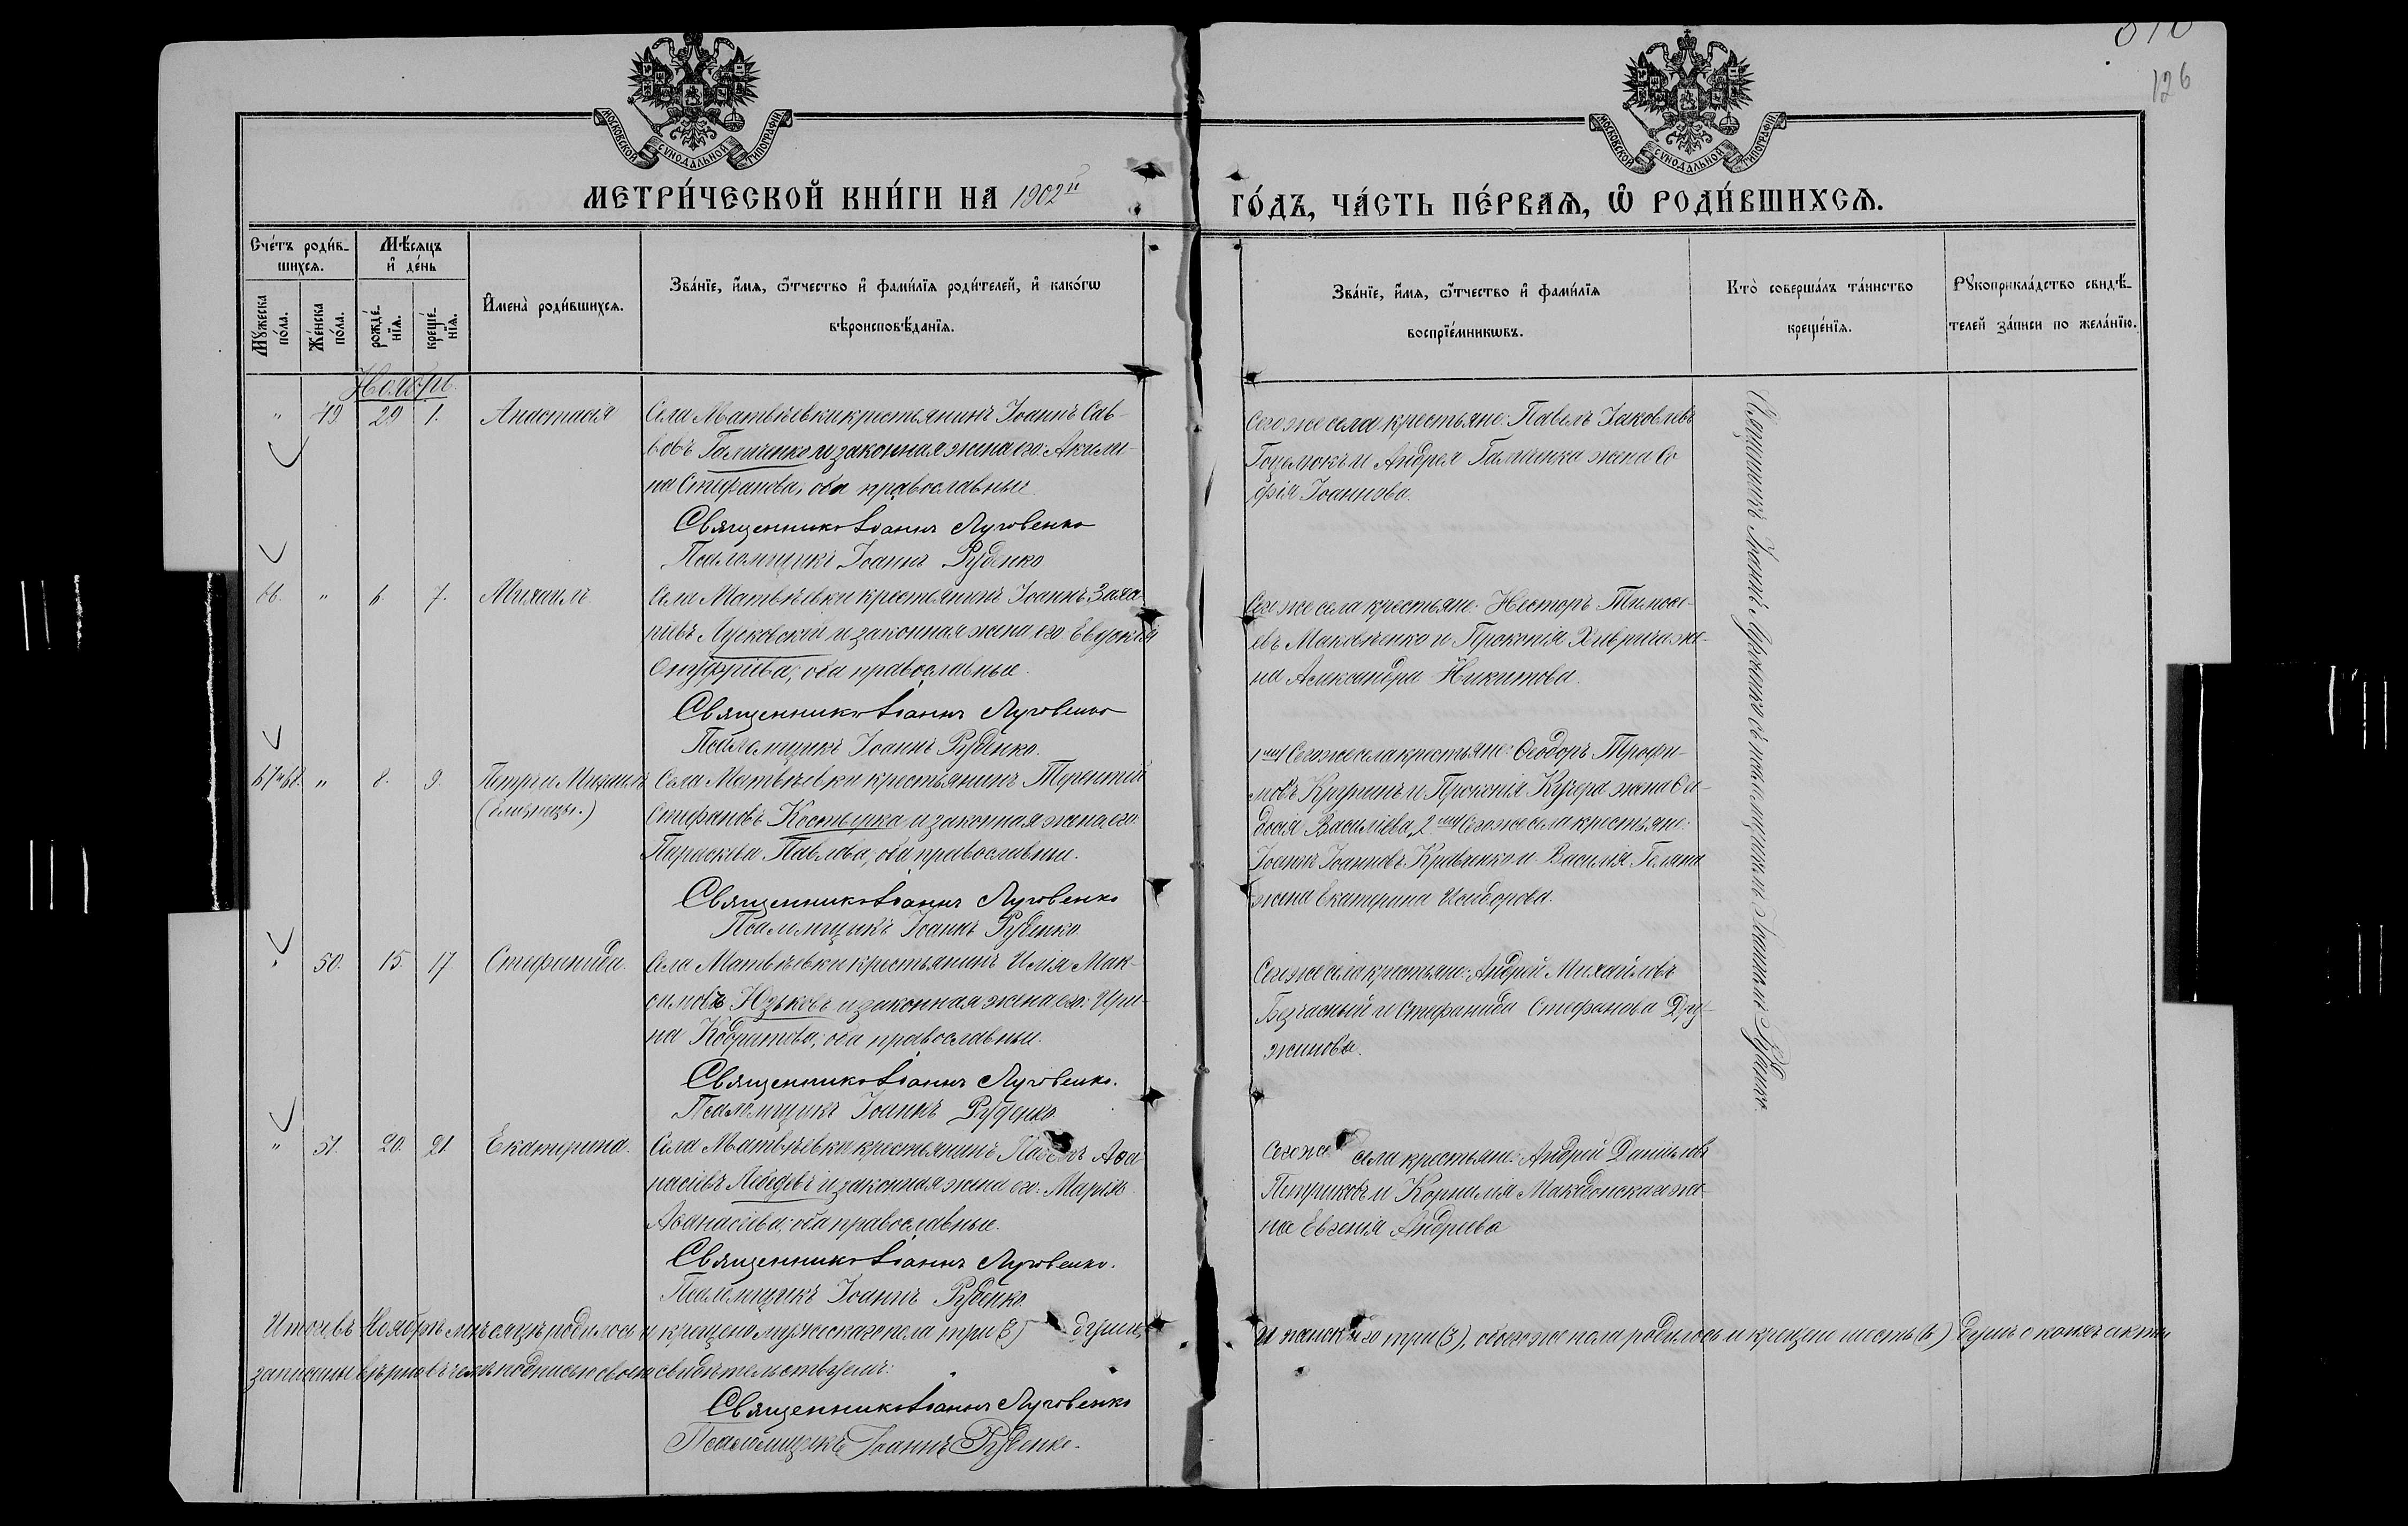 126
МОСКОВСКОЙ СѴНОДАЛЬНОЙ ТИПОГРАФІИ
МОСКОВСКОЙ СѴНОДАЛЬНОЙ ТИПОГРАФІИ
МЕТРИ́ЧЕСКОЙ КНИ́ГИ НА 1902й ГО́ДЪ, ЧА́СТЬ ПЕ́РВАѦ, Ѡ҆ РОДИ́ВШИХСѦ.
Сче́тъ роди́в-
шихсѧ.
Мꙋ́жеска по́ла.
Же́нска по́ла.
Мѣ́сѧцъ
и҆ де́нь
рожде́-
нїѧ.
креще́-
нїѧ.
И҆мена̀ роди́вшихсѧ.
Зва́нїе, и҆́мѧ, ѻ҆́тчество и҆ фами́лїѧ роди́телей, и҆ како́гѡ
вѣроисповѣ́данїѧ.
Зва́нїе, и҆́мѧ, ѻ҆́тчество и҆ фами́лїѧ
воспрїе́мникѡвъ.
Кто̀ соверша́лъ та́инство
креще́нїѧ.
Рꙋкоприкла́дство свидѣ́-
телей за́писи по жела́нїю.
Ноябрь.
" 49. 29 1. Анастасія
Села Матвѣевки крестьянинъ Іоаннъ Сав-
вовъ Галченко и законная жена его: Акили-
на Стефанова, оба православные.
Священникъ Іоаннъ Луговенко
Псаломщикъ Іоаннъ Руденко
Сего же села крестьяне: Павелъ Іаковлевъ
и Андрея Галченка жена Со-
фія Іоаннова.
66. " 6. 7. Михаилъ
Села Матвѣевки крестьянинъ Іоаннъ Заха-
ріевъ и законная жена его Евдокія
Онуфріева, оба православные.
Священникъ Іоаннъ Луговенко
Псаломщикъ Іоаннъ Руденко.
Сего же села крестьяне: Несторъ Тимоѳе-
евъ и Прокопія же-
на Александра Никитова.
67 и 68. " 8. 9. Петръ и Михаилъ
(близнецы.)
Села Матвѣевки крестьянинъ Терентій
Стефановъ Костырка и законная жена его:
Параскева Павлова, оба православные.
Священникъ Іоаннъ Луговенко
Псаломщикъ Іоаннъ Руденко.
1го Сего же села крестьяне: Ѳеодоръ Трофи-
мовъ и Прокопія Кучера жена Ѳео-
досія Василіева, 2го Сего же села крестьяне:
Іоаннъ Іоанновъ Кравченко и Василія
жена Екатерина Исидорова.
" 50. 15. 17. Стефанида.
Села Матвѣевки крестьянинъ Илія Мак-
симовъ Юзьковъ и законная жена его: Ири-
на Кодратова, оба православные.
Священникъ Іоаннъ Луговенко.
Псаломщикъ Іоаннъ Руденко
Сего же села крестьяне: Андрей Михайловъ
Безчасный и Стефанида Стефанова Дру-
жинова.
" 51. 20. 21. Екатерина.
Села Матвѣевки крестьянинъ Павелъ Аѳа-
насіевъ Лебедевъ и законная жена его: Марія
Аѳанасіева, оба православные.
Священникъ Іоаннъ Луговенко.
Псаломщикъ Іоаннъ Руденко.
Сего же села крестьяне: Андрей Даніиловъ
Петриковъ и Корнилія Македонскаго же-
на Евгенія Андреева
Священникъ Іоаннъ Луговенко съ псаломщикомъ Іоанномъ Руденко.
Итого въ Ноябрѣ мѣсяцѣ родилось и крещено мужескаго пола три (3) души, и женскаго три (3), обоего же пола родилось и крещено шесть (6) душъ о коихъ акты
записаны вѣрно въ чемъ подписью своею свидѣтельствуемъ:
Священникъ Іоаннъ Луговенко
Псаломщикъ Іоаннъ Руденко.